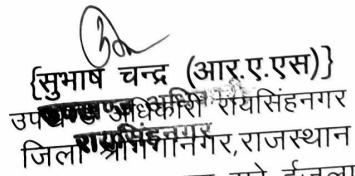 {सुभाष चन्द्र (आर.ए.एस)}
उपखण्ड अधिकारी रायसिंहनगर
जिला श्रीगंगानगर,राजस्थान